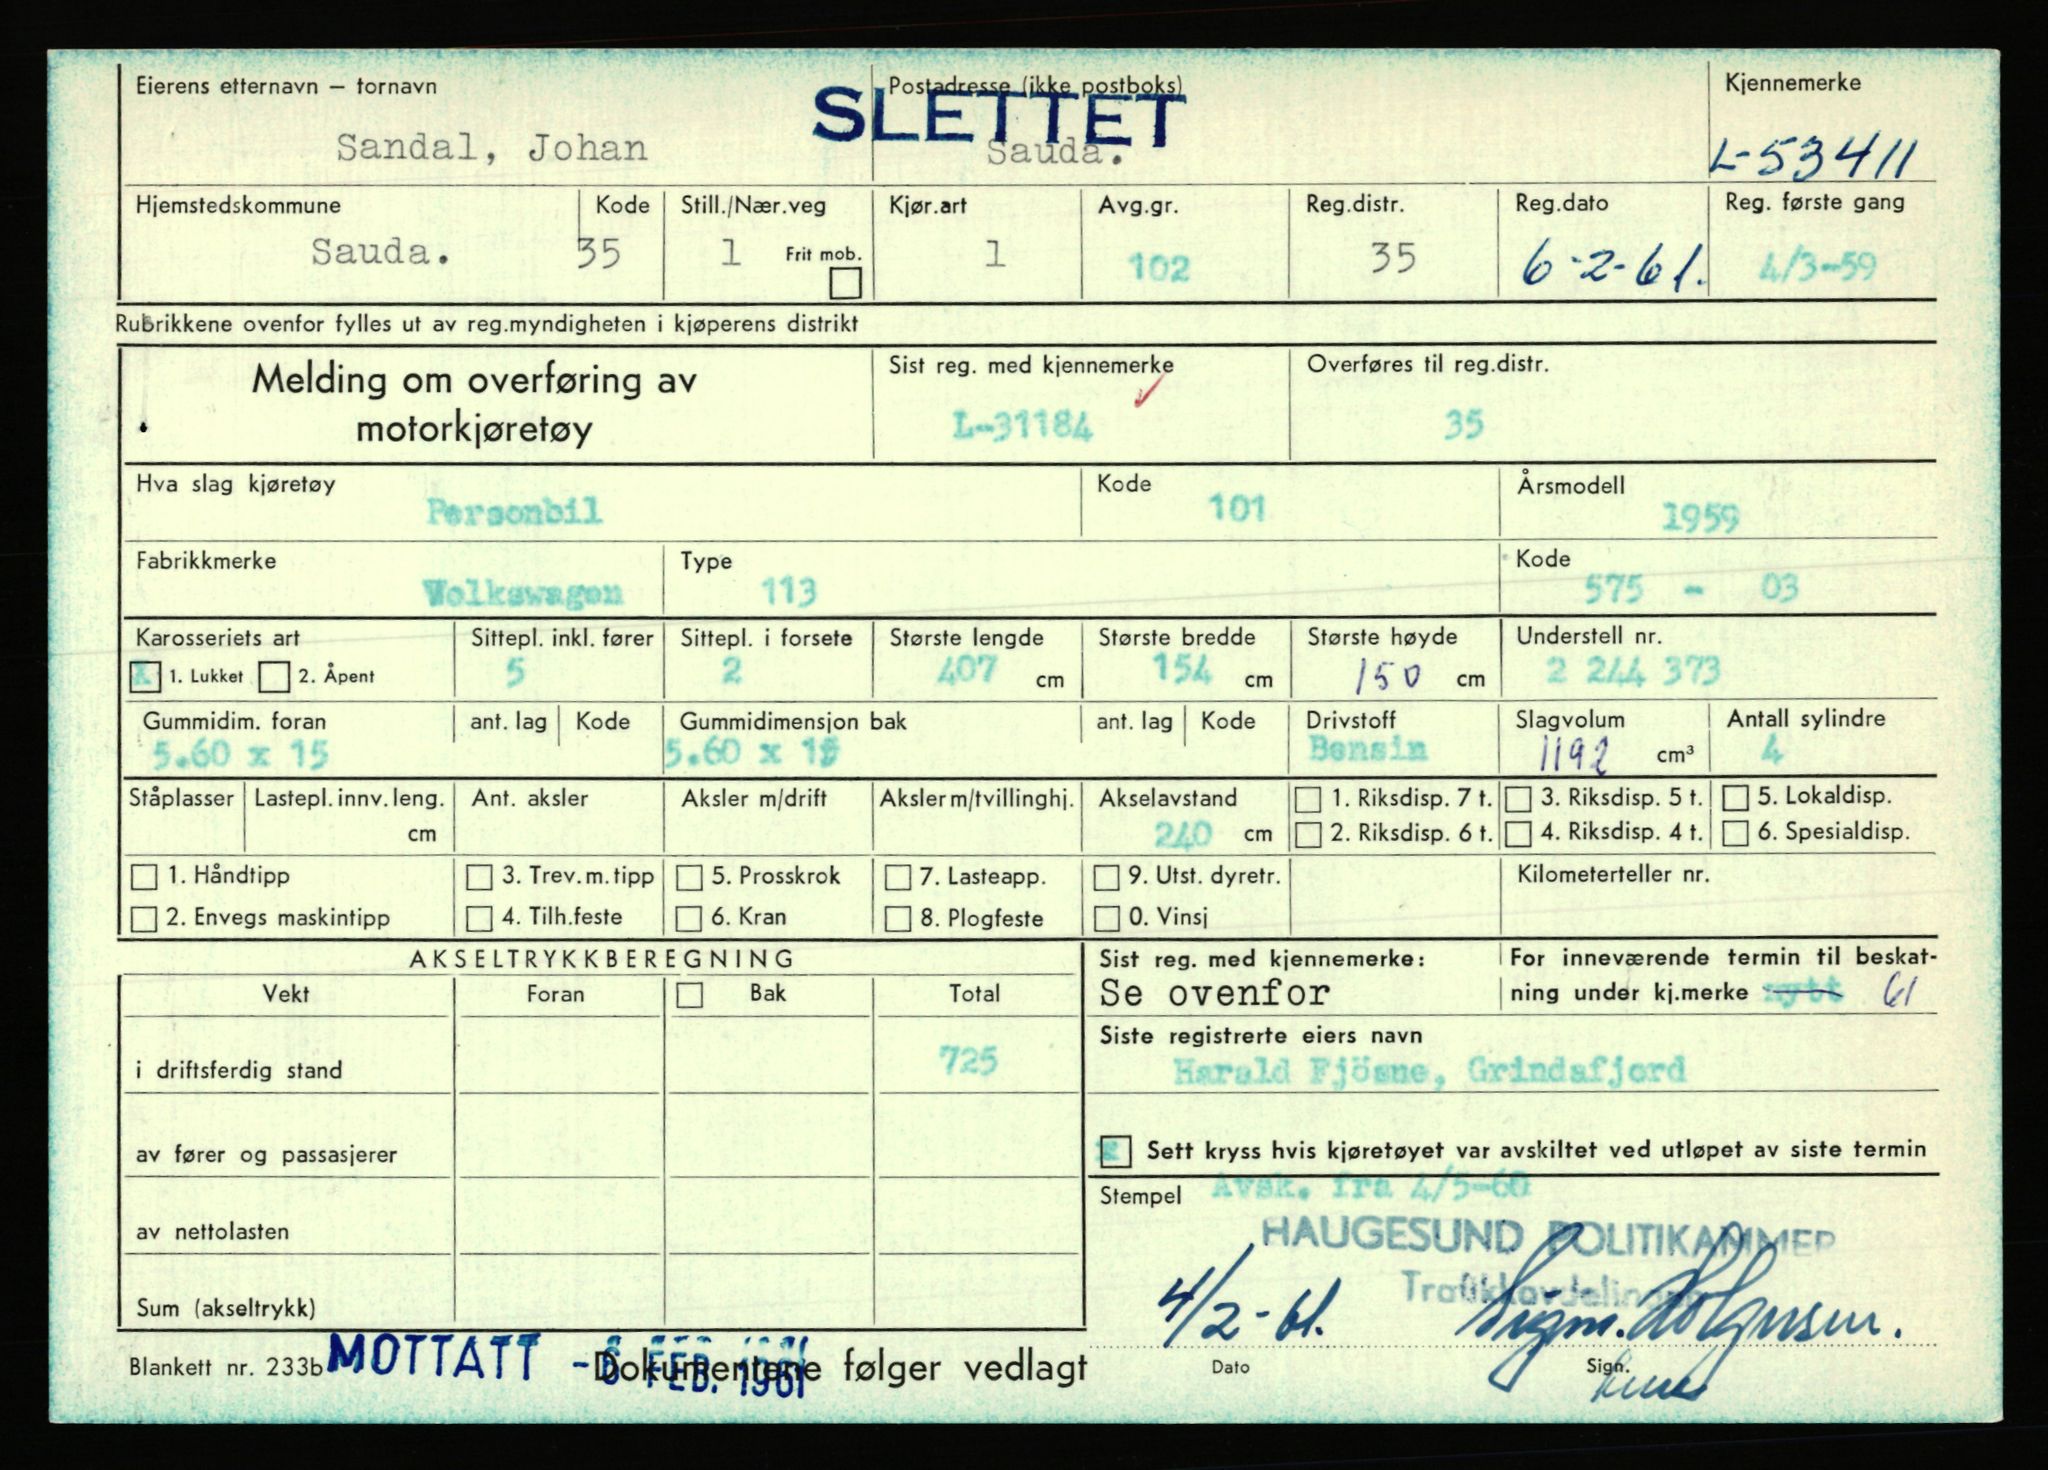 Eierens etternavn – fornavn Postadresse (ikke postboks) Kjennemerke
SLETTET
Sandal, Johan Sauda. L-53411
Hjemstedskommune Kode Still./Nær.veg Kjør.art Avg.gr. Reg.distr. Reg.dato Reg. første gang
Sauda. 35 1 Frit mob. 1 102 35 6-2-61. 4/3-59
Rubrikkene ovenfor fylles ut av reg.myndigheten i kjøperens distrikt
Melding om overføring av Sist reg. med kjennemerke Overføres til reg.distr.
motorkjøretøy L-31184 35
Hva slag kjøretøy Kode Årsmodell
Personbil 101 1959
Fabrikkmerke Type Kode
Volkswagen 113 575 - 03
Karosseriets art Sittepl. inkl. fører Sittepl. i forsete Største lengde Største bredde Største høyde Understell nr.
X 1. Lukket 2. Åpent 5 2 407 cm 154 cm 150 cm 2 244 373
Gummidim. foran ant. lag Kode Gummidimensjon bak ant. lag Kode Drivstoff Slagvolum Antall sylindre
5.60 x 15 5.60 x 15 Bensin 1192 cm³ 4
Ståplasser Lastepl. innv. leng. Ant. aksler Aksler m/drift Aksler m/tvillinghj. Akselavstand 1. Riksdisp. 7 t. 3. Riksdisp. 5 t. 5. Lokaldisp.
cm 240 cm 2. Riksdisp. 6 t. 4. Riksdisp. 4 t. 6. Spesialdisp.
1. Håndtipp 3. Trev.m.tipp 5. Prosskrok 7. Lasteapp. 9. Utst. dyretr. Kilometerteller nr.
2. Envegs maskintipp 4. Tilh.feste 6. Kran 8. Plogfeste 0. Vinsj
AKSELTRYKKBEREGNING Sist reg. med kjennemerke: For inneværende termin til beskat-
Vekt Foran Bak Total Se ovenfor ning under kj.merke nytt 61
Siste registrerte eiers navn
i driftsferdig stand 725 Harald Fjösne, Grindafjord
av fører og passasjerer x Sett kryss hvis kjøretøyet var avskiltet ved utløpet av siste termin
Stempel Avsk. fra 4/5-60
av nettolasten HAUGESUND POLITIKAMMER
Trafikkavdelingen
Sum (akseltrykk) 4/2-61.
Blankett nr. 233b MOTTATT -6 FEB. 1961 Dokumentene følger vedlagt Dato Sign.